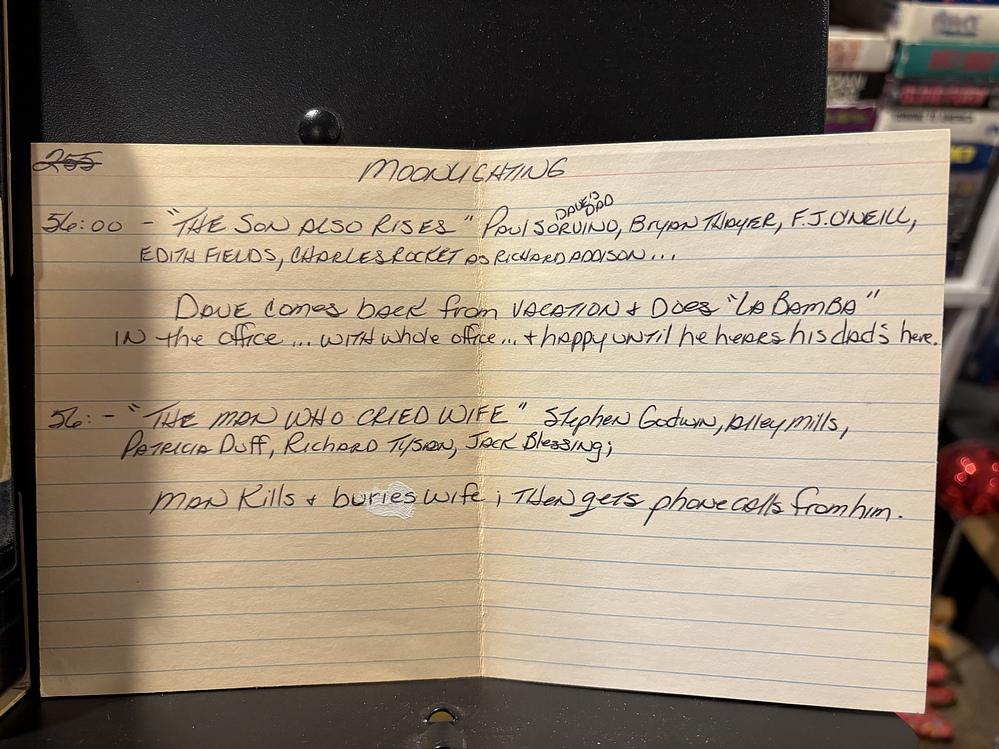 255
MOONLIGHTING
56:00 - "THE SON ALSO RISES" PAUL SORVINO, BRYAN THAYER, F.J. O'NEILL,
DAVE'S DAD
EDITH FIELDS, CHARLES ROCKET AS RICHARD ADDISON...
DAVE comes back from VACATION & DOES "LA BAMBA"
IN the office... WITH whole office... & happy UNTIL he hears his dad's here.
56: - "THE MAN WHO CRIED WIFE" Stephen Godwin, Alley Mills,
PATRICIA DUFF, RICHARD TYSON, JACK Blessing;
MAN Kills & buries wife; THEN gets phone calls from him.